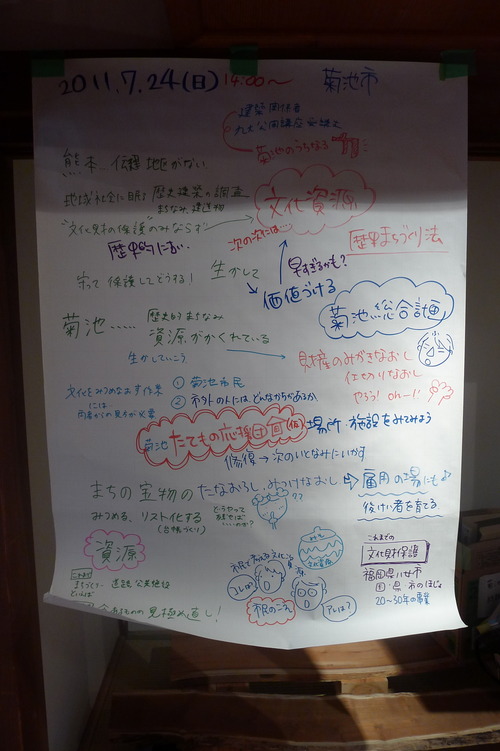 2011.7.24(日) 14:00〜 菊池市
建築関係者
九大公開講座受講生
菊池のうちなる
熊本…伝建地区がない
地域社会に眠る歴史建築の調査
まちなみ、建造物
文化資源
"文化財の保護"のみならず
次の次には…
歴史的に古い
歴史まちづくり法
早すぎるかも?
守って保護してどうする! 生かして
価値づける
菊池総合計画
菊池..... 歴史的まちなみ
資源がかくれている
生かしていこう
財産のみがきなおし
仕切りなおし
やろう! oh—!!
文化をみつめなおす作業
には
両者からの見方が必要
① 菊池市民
② 市外の人には、どんなちからがあるか
菊池たてもの応援計画(仮)
場所・施設をみてみよう
修復→次のいとなみにいかす
まちの宝物のたなおろし、みつけなおし
??
雇用の場にも
後けい者を育てる
みつめる、リスト化する
(台帳づくり)
どうやって
のか?
資源
市民で考える文化資源
コレは?
市民のこえ
アレは?
これまで
まちづくり…
といえば
道路公共施設
ものの見極め直し!
これまでの
文化財保護
福岡県八女市
国・県・市のほじょ
20〜30年の事業